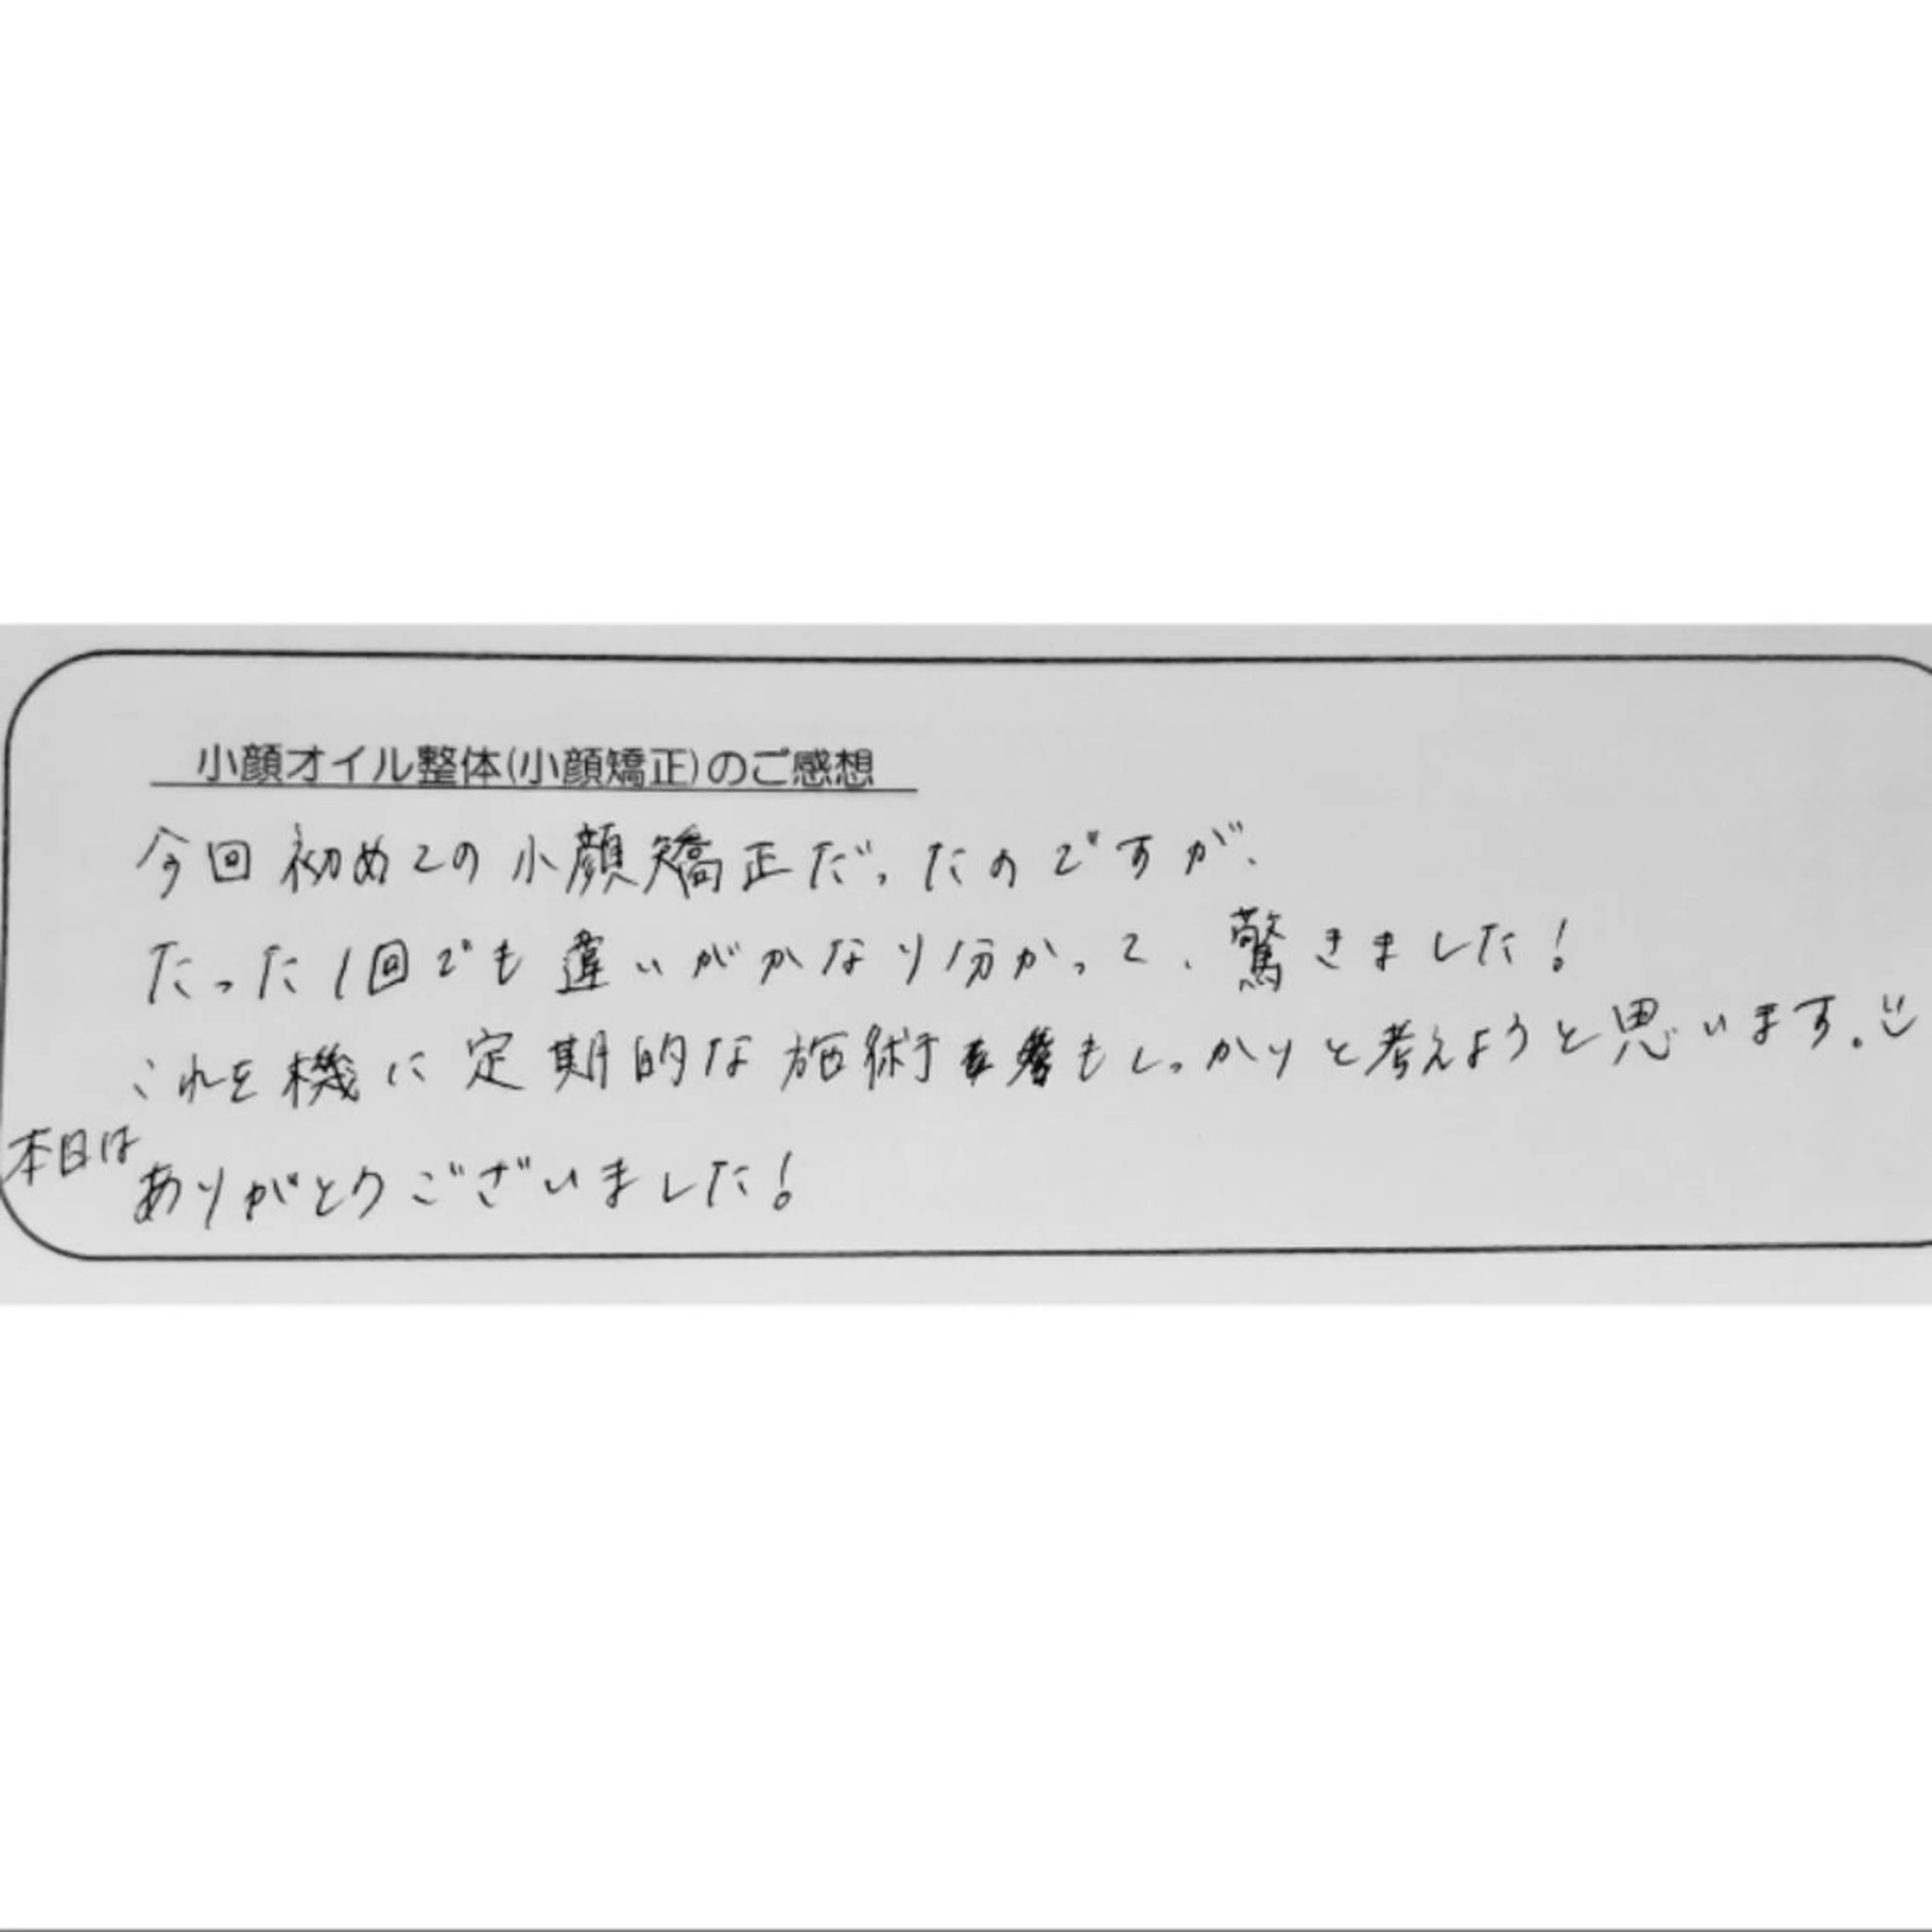 小顔オイル整体(小顔矯正)のご感想
今回初めての小顔矯正だったのですが、
たった1回でも違いがかなり分かって、驚きました!
これを機に定期的な施術もしっかりと考えようと思います。
本日は
ありがとうございました!